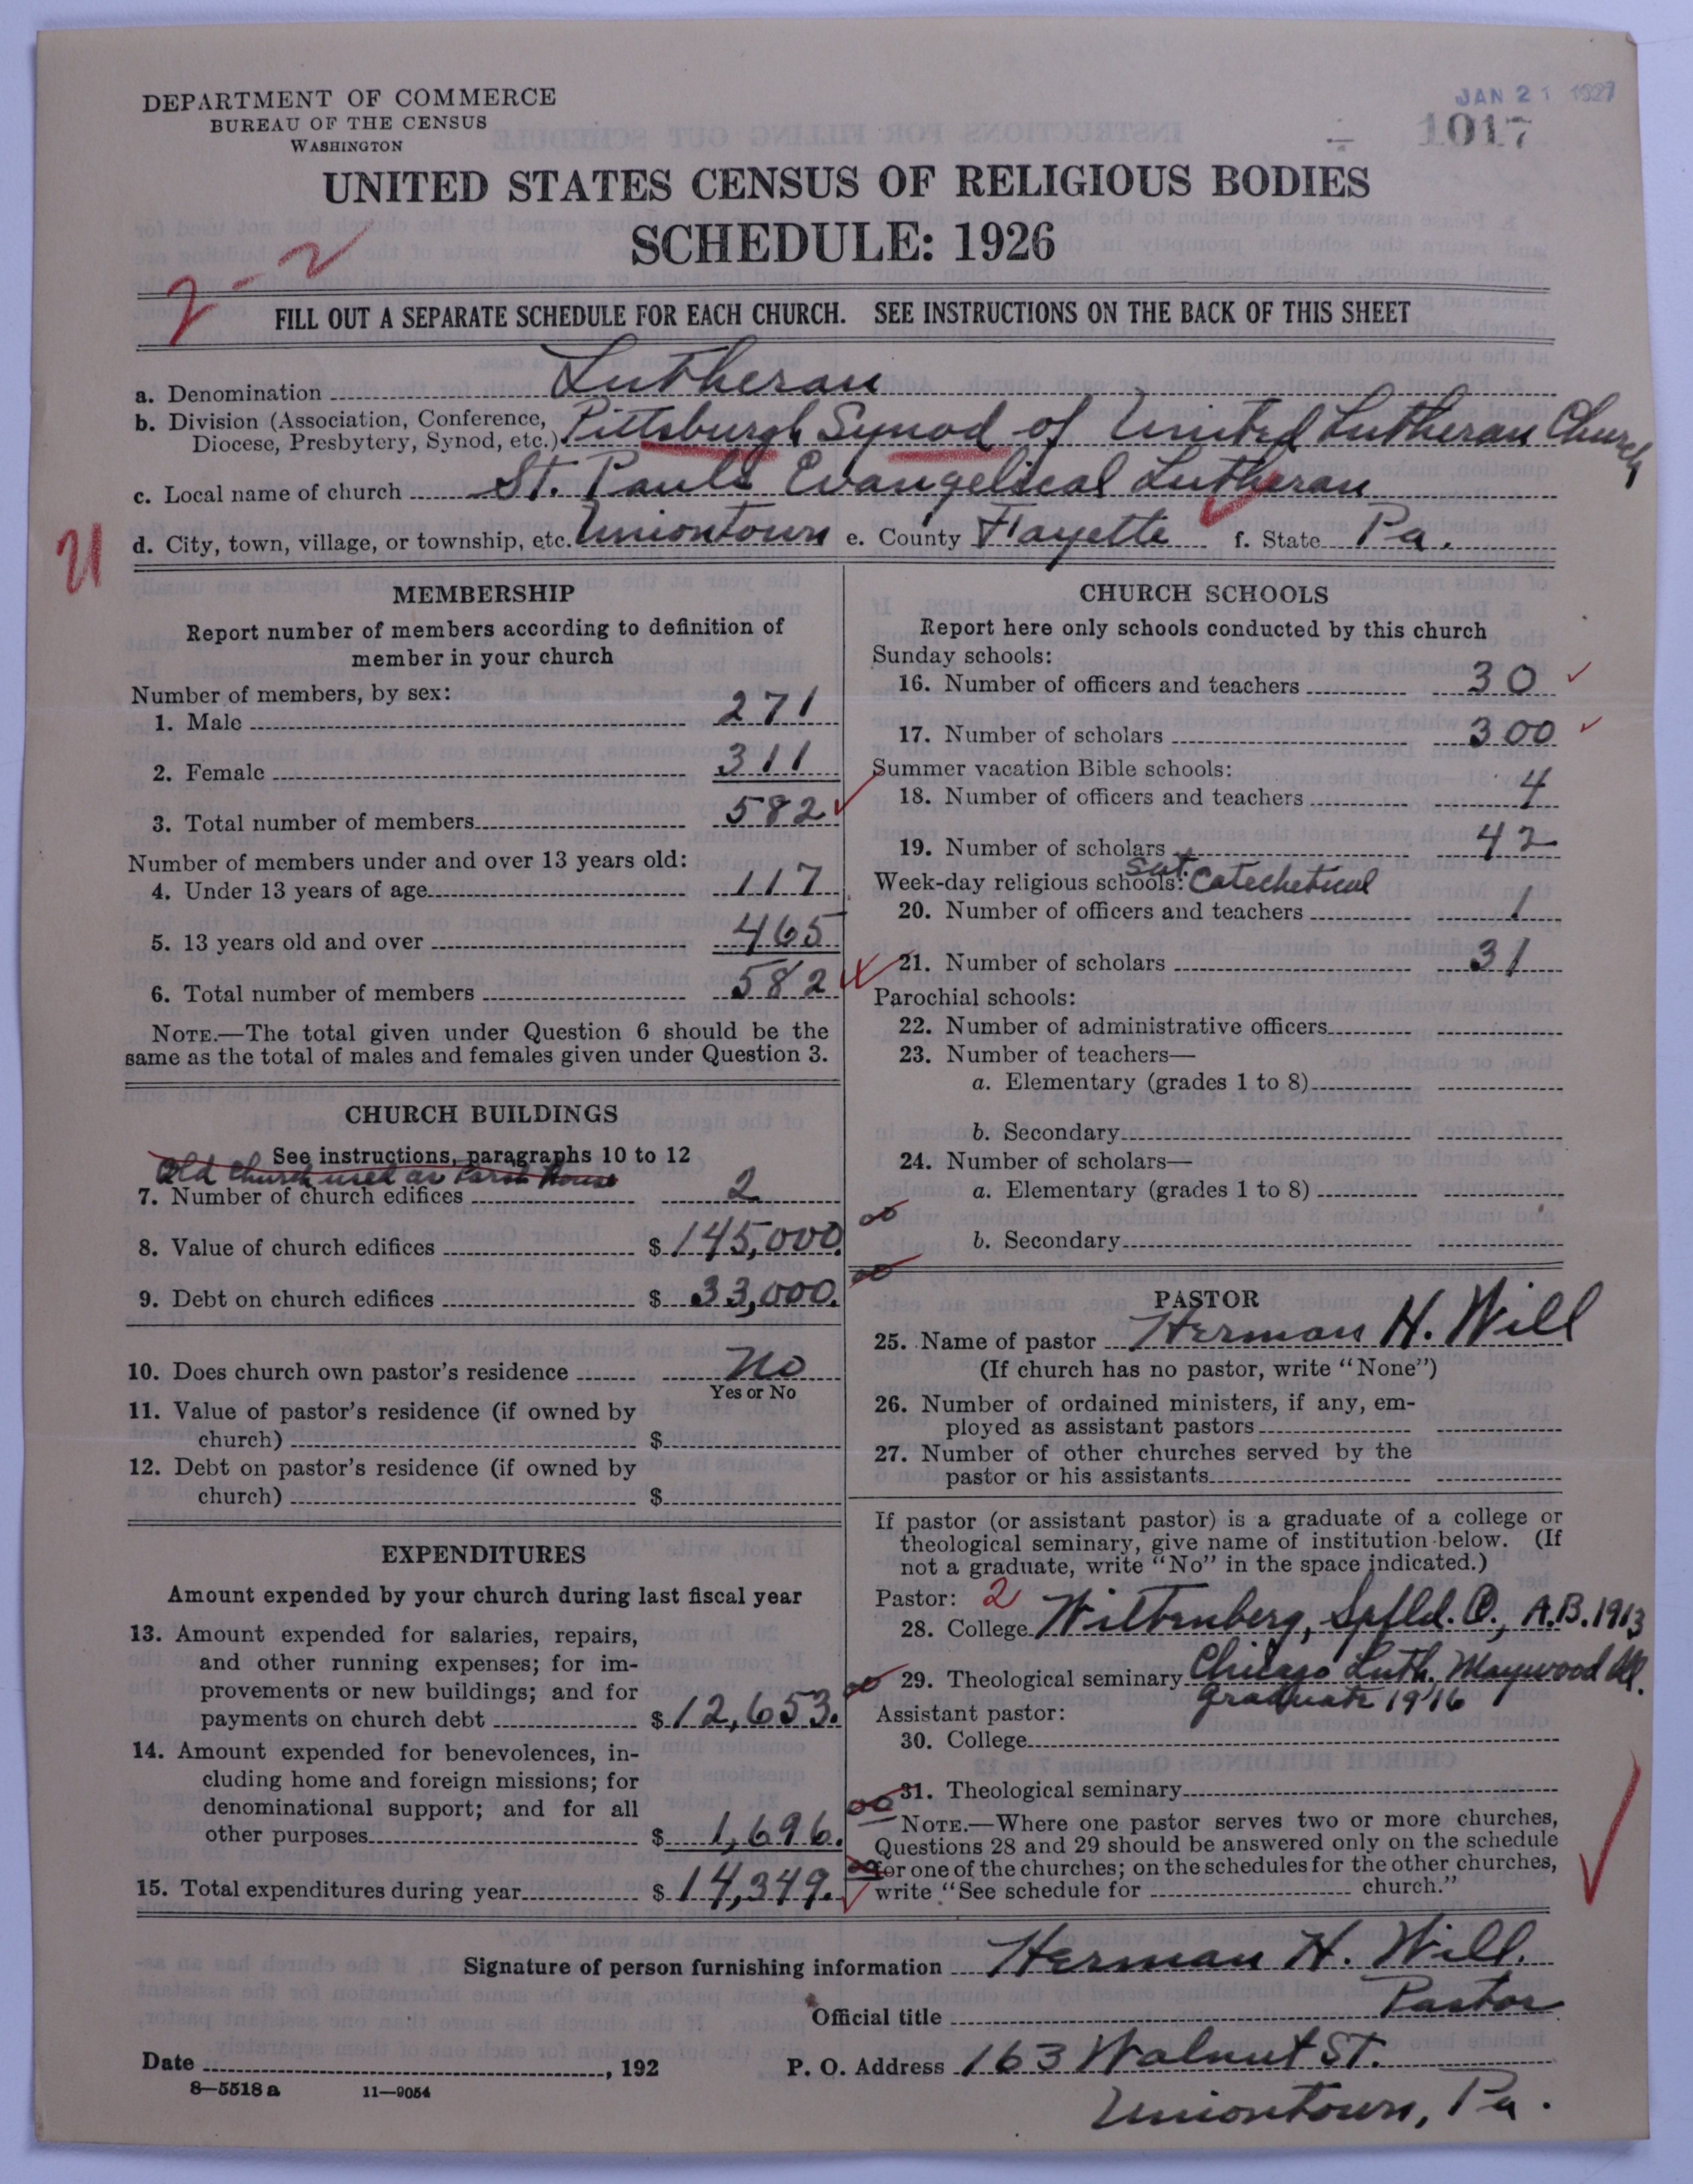 DEPARTMENT OF COMMERCE
BUREAU OF THE CENSUS
WASHINGTON
JAN 21 1927
1017
UNITED STATES CENSUS OF RELIGIOUS BODIES
SCHEDULE: 1926
2-2
FILL OUT A SEPARATE SCHEDULE FOR EACH CHURCH. SEE INSTRUCTIONS ON THE BACK OF THIS SHEET
a. Denomination Lutheran
b. Division (Association, Conference,
Diocese, Presbytery, Synod, etc.) Pittsburgh Synod of United Lutheran Church
c. Local name of church St. Pauls Evangelical Lutheran
d. City, town, village, or township, etc. Uniontown e. County Fayette f. State Pa.
MEMBERSHIP
Report number of members according to definition of
member in your church
Number of members, by sex:
1. Male 271
2. Female 311
3. Total number of members 582
Number of members under and over 13 years old:
4. Under 13 years of age 117
5. 13 years old and over 465
6. Total number of members 582
NOTE.—The total given under Question 6 should be the
same as the total of males and females given under Question 3.
CHURCH BUILDINGS
See instructions, paragraphs 10 to 12
Old Church used as Parish House
7. Number of church edifices 2
8. Value of church edifices $145,000.
9. Debt on church edifices $33,000.
10. Does church own pastor's residence No
Yes or No
11. Value of pastor's residence (if owned by
church) $
12. Debt on pastor's residence (if owned by
church) $
EXPENDITURES
Amount expended by your church during last fiscal year
13. Amount expended for salaries, repairs,
and other running expenses; for im-
provements or new buildings; and for
payments on church debt $12,653.
14. Amount expended for benevolences, in-
cluding home and foreign missions; for
denominational support; and for all
other purposes $1,696.
15. Total expenditures during year $14,349.
CHURCH SCHOOLS
Report here only schools conducted by this church
Sunday schools:
16. Number of officers and teachers 30
17. Number of scholars 300
Summer vacation Bible schools:
18. Number of officers and teachers 4
19. Number of scholars 42
Week-day religious schools: Sat. Catechetical
20. Number of officers and teachers 1
21. Number of scholars 31
Parochial schools:
22. Number of administrative officers
23. Number of teachers—
a. Elementary (grades 1 to 8)
b. Secondary
24. Number of scholars—
a. Elementary (grades 1 to 8)
b. Secondary
PASTOR
25. Name of pastor Herman H. Will
(If church has no pastor, write "None")
26. Number of ordained ministers, if any, em-
ployed as assistant pastors
27. Number of other churches served by the
pastor or his assistants
If pastor (or assistant pastor) is a graduate of a college or
theological seminary, give name of institution below. (If
not a graduate, write "No" in the space indicated.)
Pastor: 2
28. College Wittenberg, Spfld. O., A.B. 1913
29. Theological seminary Chicago Luth. Maywood Ill.
Graduate 1916
Assistant pastor:
30. College
31. Theological seminary
NOTE.—Where one pastor serves two or more churches,
Questions 28 and 29 should be answered only on the schedule
for one of the churches; on the schedules for the other churches,
write "See schedule for church."
Signature of person furnishing information Herman H. Will.
Official title Pastor
Date , 192 P. O. Address 163 Walnut St.
Uniontown, Pa.
8—5518 a 11—9054